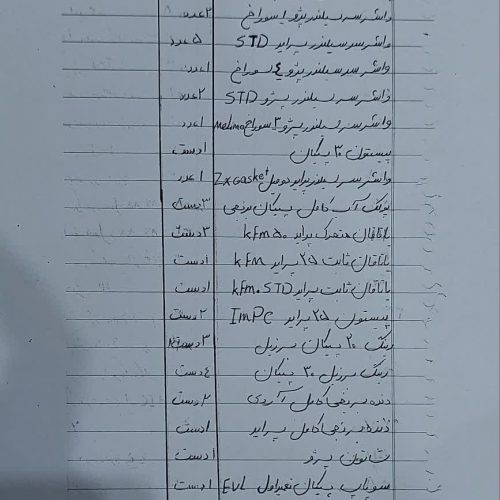 واشر سر سیلندر پژو ۱ سوراخ ۲ عدد
واشر سر سیلندر پراید STD ۵ عدد
واشر سر سیلندر پژو ٤ سوراخ ۱ عدد
واشر سر سیلندر پژو STD ۲ عدد
واشر سر سیلندر پژو ۳ سوراخ ۱ عدد
پیستون ۳۰ پیکان ۱ دست
واشر سر سیلندر پراید Zx Gasket ۱ عدد
پولک آب کامل پیکان برنجی ۳ دست
یاتاقان متحرک پراید ۵۰ kfm ۳ دست
یاتاقان ثابت ۲۵ پراید kfm ۱ دست
یاتاقان ثابت پراید kfm . STD ۱ دست
پیستون ۲۵ پراید ImPC ۲ دست
رینگ ۲۰ پیکان برزیل ۳ دست
رینگ برزیل ۳۰ پیکان ٤ دست
دنده برنجی کامل آردی ۲ دست
دنده برنجی کامل پراید ۱ دست
شاتون پژو ۱ دست
سوپاپ پیکان EVL ۱ دست